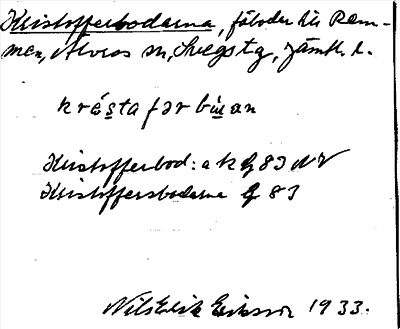 Kristofferbodarna, fäbodar till Rem-
men, Älvros sn, Svegs tg, Jämtl. l.
krɛ́sta fər bu̇an
Kristofferbod: a k G 83 NV
Kristoffersbodarna G 83
Nils Erik Eriksson 1933.